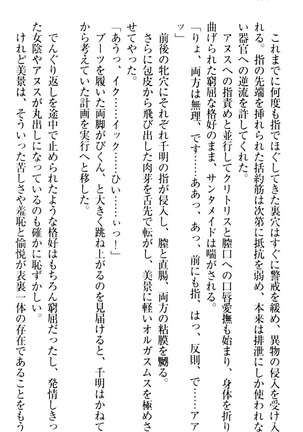 これまでに何度も指でほぐしてきた裏穴はすぐに警戒を緩め、異物の侵入を受け入
れる。指の先端を挿れられた括約筋は次第に抵抗を弱め、本来は排泄にしか使われな
い器官への逆流を許してくれた。
アヌスへの指責めと並行してクリトリスと膣口への口唇愛撫も始まり、身体を折り
曲げられた窮屈な格好のまま、サンタメイドは喘がされる。
「りょ、両方は無理、です……ああっ、あっ、前にも指、はっ、反則、で……アア
ッ」
前後の牝穴にそれぞれ千明の指が侵入し、膣と直腸、両方の粘膜を嬲る。
さらに包皮から飛び出した肉芽を舌先で転がし、美景に軽いオルガスムスを極めさ
せてやった。
「あうっ、イク……イッ、ク……ひい……っっ！」
ブーツを履いた両脚がびくん、と大きく跳ね上がるのを見届けると、千明はかねて
たてていた計画を実行へと移した。
でんぐり返しを途中で止められたような格好はもちろん窮屈だったし、発情しきっ
た女陰やアヌスが丸出しになっているのも確かに恥ずかしい。
けれど美景は、そういった苦しさや羞恥と愉悦が表裏一体の存在であることをもう